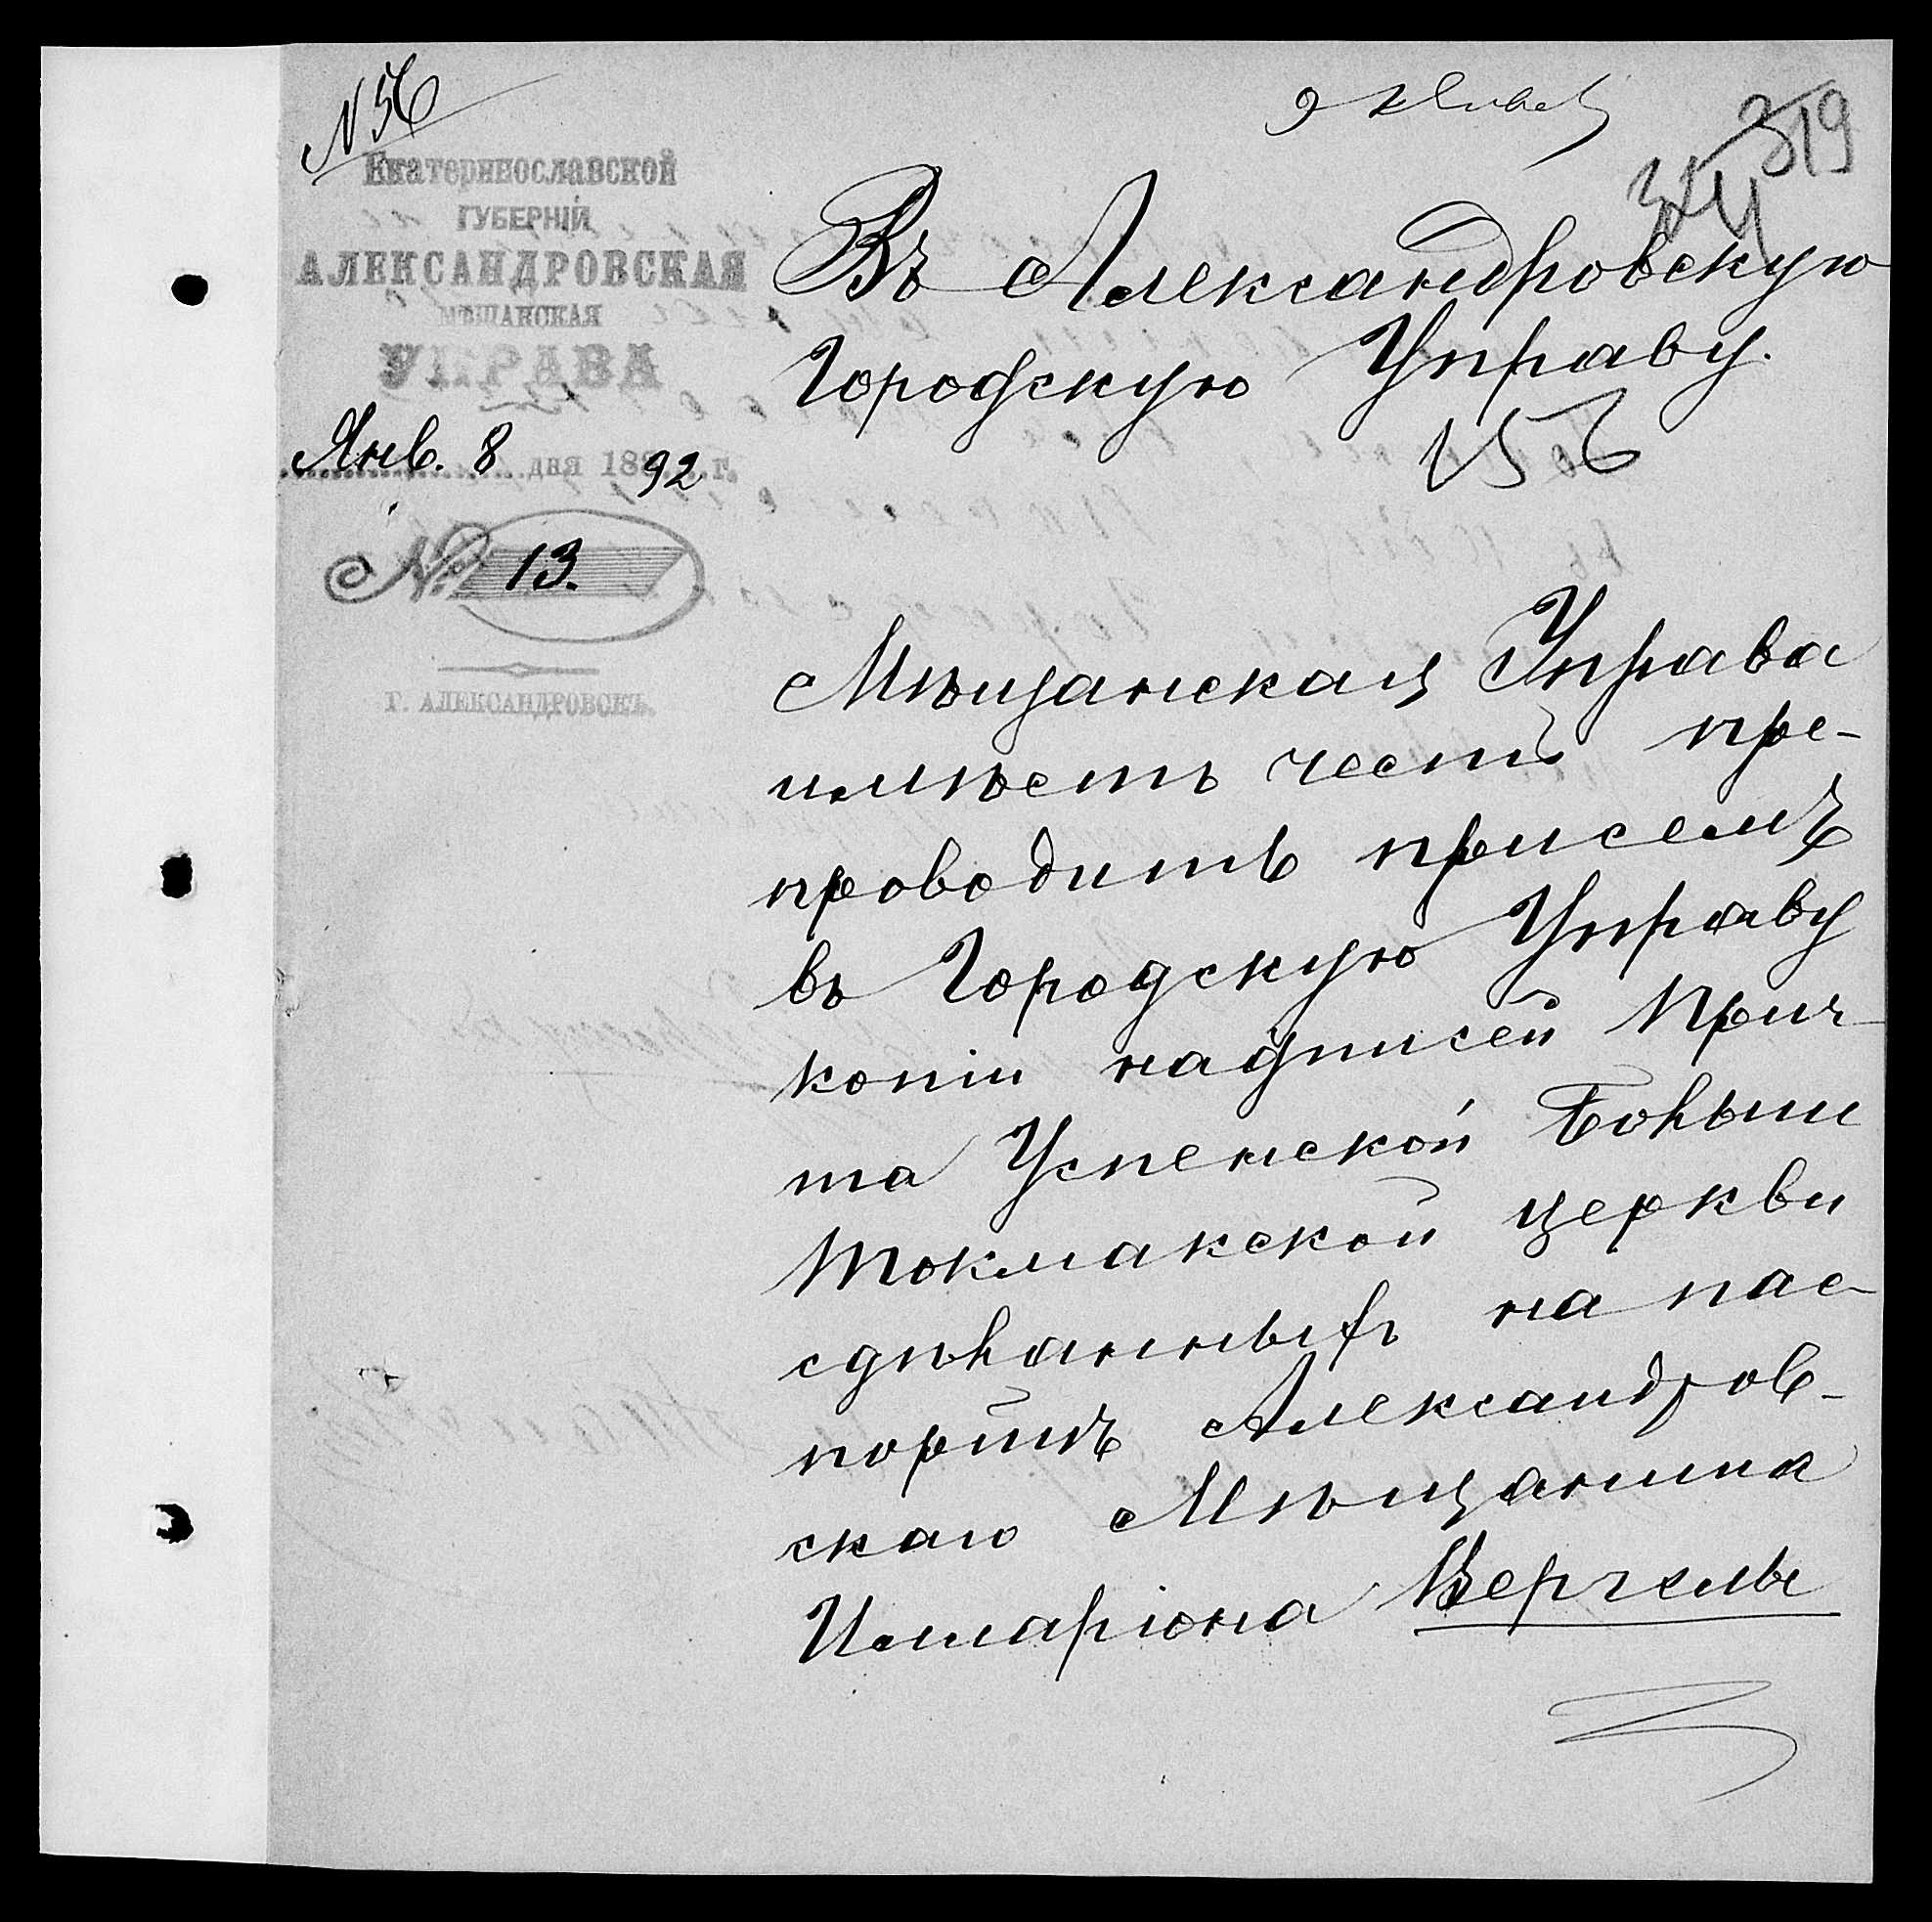 N 56
9 Января
319
Екатеринославской
ГУБЕРНІЙ
АЛЕКСАНДРОВСКАЯ
МѢЩАНСКАЯ
УПРАВА
Янв. 8 дня 1892 г.
№ 13.
Г. АЛЕКСАНДРОВСКЪ.
Въ Александровскую
Городскую Управу.
Мѣщанская Управа
имѣетъ честь пре-
проводить при семъ
въ Городскую Управу
копіи надписей Прич-
та Успенской Больше
Токмакской церкви
сдѣланныхъ на пас-
портъ Александров-
скаго Мѣщанина
Иларіона Вергелы